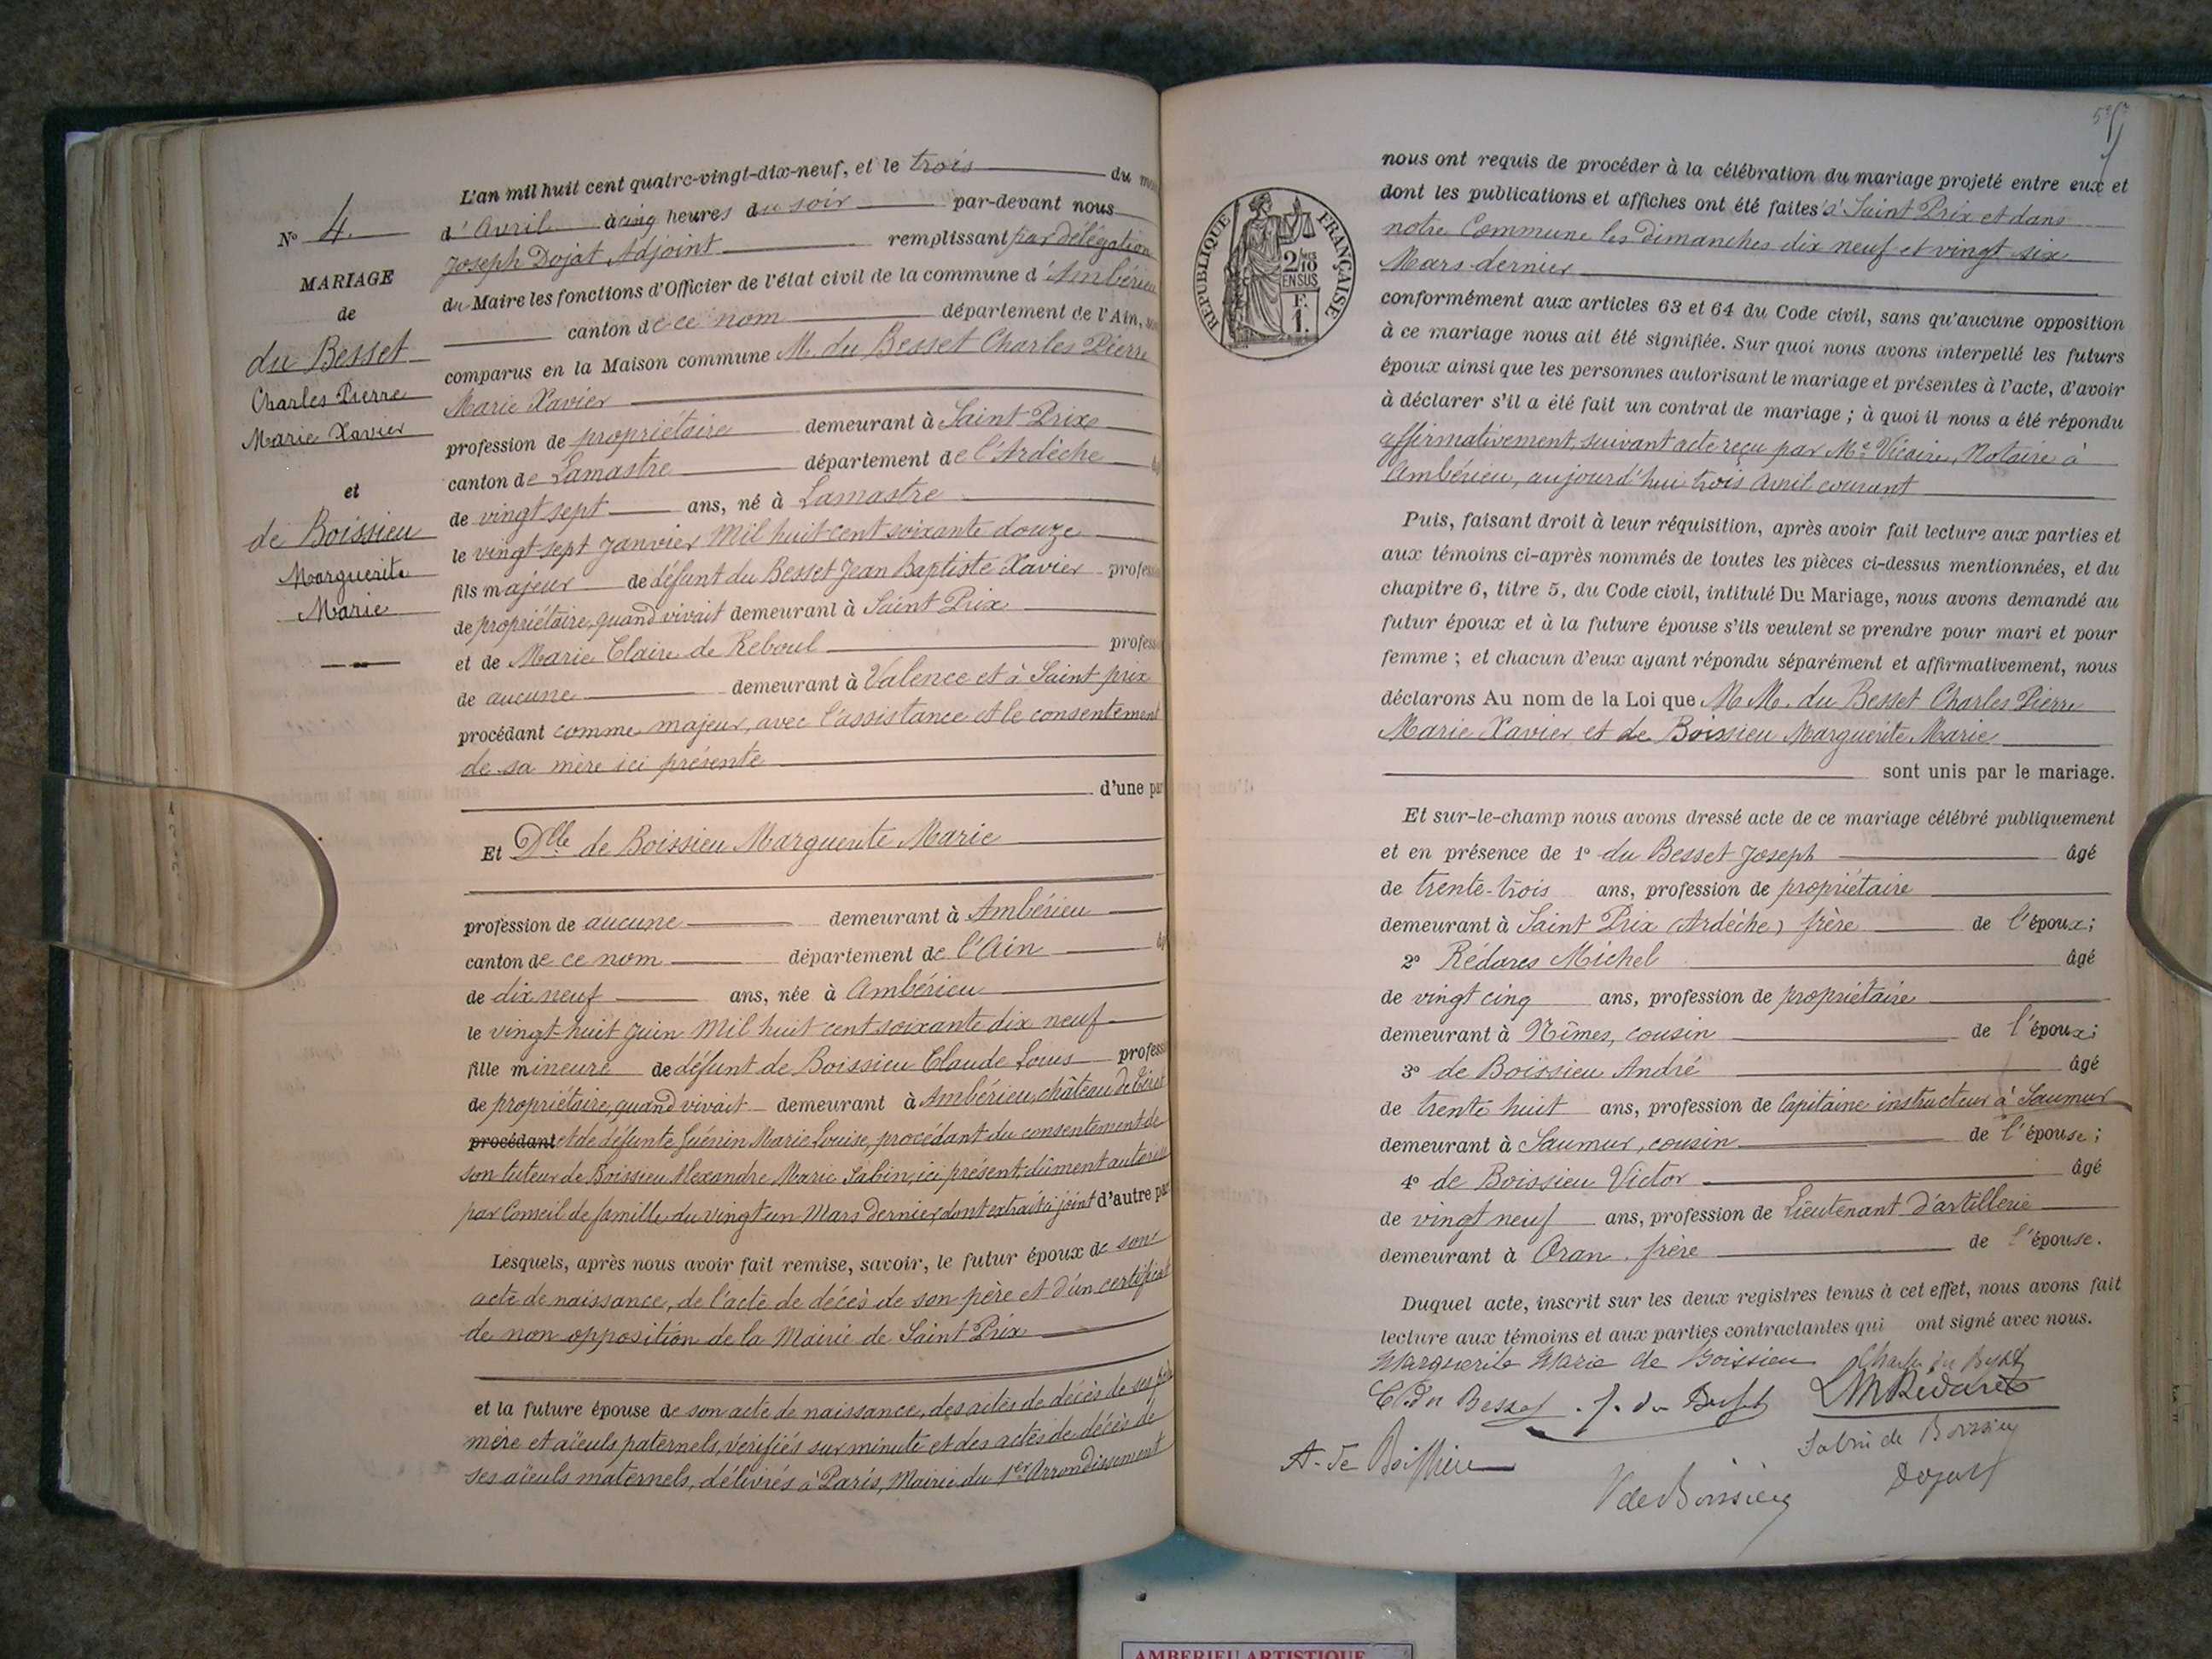 N° 4.
MARIAGE
de
du Besset
Charles Pierre
Marie Xavier
et
de Boissieu
Marguerite
Marie
L'an mil huit cent quatre-vingt-dix-neuf, et le trois du
d'Avril à cinq heures du soir par-devant nous
Joseph Dojat Adjoint remplissant par délégation
du Maire les fonctions d'Officier de l'état civil de la commune d'Ambérieu
canton de ce nom département de l'Ain,
comparus en la Maison commune M. du Besset Charles Pierre
Marie Xavier
profession de propriétaire demeurant à Saint Prix
canton de Lamastre département de l'Ardèche
de vingt sept ans, né à Lamastre
le vingt sept Janvier Mil huit cent soixante douze
fils majeur de défunt du Besset Jean Baptiste Xavier profes
de propriétaire, quand vivait demeurant à Saint Prix
et de Marie Claire de Reboul profess
de aucune demeurant à Valence et à Saint prix
procédant comme majeur, avec l'assistance et le consentement
de sa mère ici présente
d'une par
Et Dlle de Boissieu Marguerite Marie
profession de aucune demeurant à Ambérieu
canton de ce nom département de l'Ain
de dix neuf ans, née à Ambérieu
le vingt-huit Juin Mil huit cent soixante dix neuf
fille mineure de défunt de Boissieu Claude Louis profess
de propriétaire, quand vivait demeurant à Ambérieu, château de
procédant et de défunte Guénin Marie Louise, procédant du consentement de
son tuteur de Boissieu Alexandre Marie Sabin, ici présent, dûment autorisé
par Conseil de famille du vingt un Mars dernier, dont extrait ci joint d'autre par
Lesquels, après nous avoir fait remise, savoir, le futur époux de son
acte de naissance, de l'acte de décès de son père et d'un certificat
de non opposition de la Mairie de Saint Prix
et la future épouse de son acte de naissance, des actes de décès de ses père
mère et aïeuls paternels, vérifiés sur minute et des actes de décès de
ses aïeuls maternels, délivrés à Paris, Mairie du 1er Arrondissement
RÉPUBLIQUE FRANÇAISE
2/10
EN SUS
F.
1.
nous ont requis de procéder à la célébration du mariage projeté entre eux et
dont les publications et affiches ont été faites à Saint Prix et dans
notre Commune les dimanches dix neuf et vingt six
Mars dernier
conformément aux articles 63 et 64 du Code civil, sans qu'aucune opposition
à ce mariage nous ait été signifiée. Sur quoi nous avons interpellé les futurs
époux ainsi que les personnes autorisant le mariage et présentes à l'acte, d'avoir
à déclarer s'il a été fait un contrat de mariage ; à quoi il nous a été répondu
affirmativement, suivant acte reçu par Me Vicaire, Notaire à
Ambérieu, aujourd'hui trois Avril courant
Puis, faisant droit à leur réquisition, après avoir fait lecture aux parties et
aux témoins ci-après nommés de toutes les pièces ci-dessus mentionnées, et du
chapitre 6, titre 5, du Code civil, intitulé Du Mariage, nous avons demandé au
futur époux et à la future épouse s'ils veulent se prendre pour mari et pour
femme ; et chacun d'eux ayant répondu séparément et affirmativement, nous
déclarons Au nom de la Loi que M M. du Besset Charles Pierre
Marie Xavier et de Boissieu Marguerite Marie
sont unis par le mariage.
Et sur-le-champ nous avons dressé acte de ce mariage célébré publiquement
et en présence de 1° du Besset Joseph âgé
de trente-trois ans, profession de propriétaire
demeurant à Saint Prix (Ardèche) frère de l'époux;
2° Rédarès Michel âgé
de vingt cinq ans, profession de propriétaire
demeurant à Nîmes, cousin de l'époux;
3° de Boissieu André âgé
de trente huit ans, profession de Capitaine instructeur à Saumur
demeurant à Saumur, cousin de l'épouse;
4° de Boissieu Victor âgé
de vingt neuf ans, profession de Lieutenant d'artillerie
demeurant à Oran frère de l'épouse.
Duquel acte, inscrit sur les deux registres tenus à cet effet, nous avons fait
lecture aux témoins et aux parties contractantes qui ont signé avec nous.
Marguerite Marie de Boissieu Charles du Besset
C. du Besset J. du Besset LMRédarès
A. de Boissieu Sabin de Boissieu
V de Boissieu Dojat
AMBERIEU ARTISTIQUE